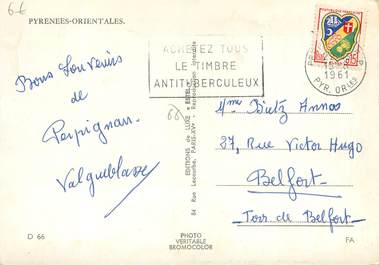 66
PYRENEES-ORIENTALES.
ACHETEZ TOUS
LE TIMBRE
ANTITUBERCULEUX
1961
PYR. OR
Bons Souvenirs
de
Perpignan.
66
EDITIONS de LUXE - ESTEL
84 Rue Lecourbe, PARIS-XVe - Reproduction interdite
Mme Dietz Annas
37, Rue Victor Hugo
Belfort
Terr. de Belfort
D 66
PHOTO
VERITABLE
BROMOCOLOR
FA